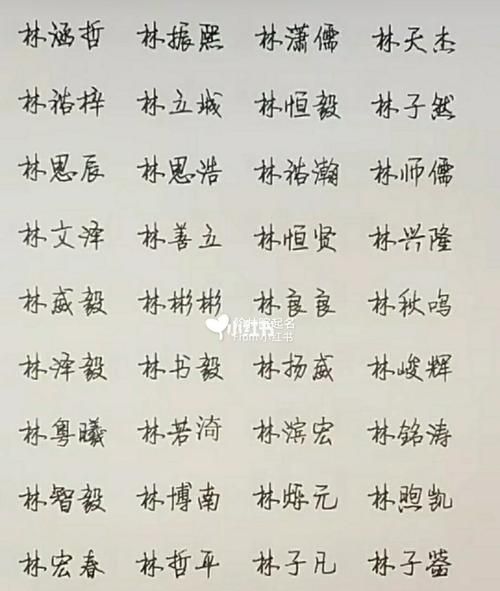 林涵哲 林振熙 林潇儒 林天杰
林祮梓 林立城 林恒毅 林子然
林思辰 林思浩 林祮瀚 林师儒
林文泽 林善立 林恒贤 林兴隆
林威毅 林彬彬 林良良 林秋鸣
小红书
起名
From小红书
林泽毅 林书毅 林扬威 林峻辉
林粤曦 林若渏 林滨宏 林铭涛
林智毅 林博南 林烁元 林煦凯
林宏春 林哲平 林子凡 林子鉴